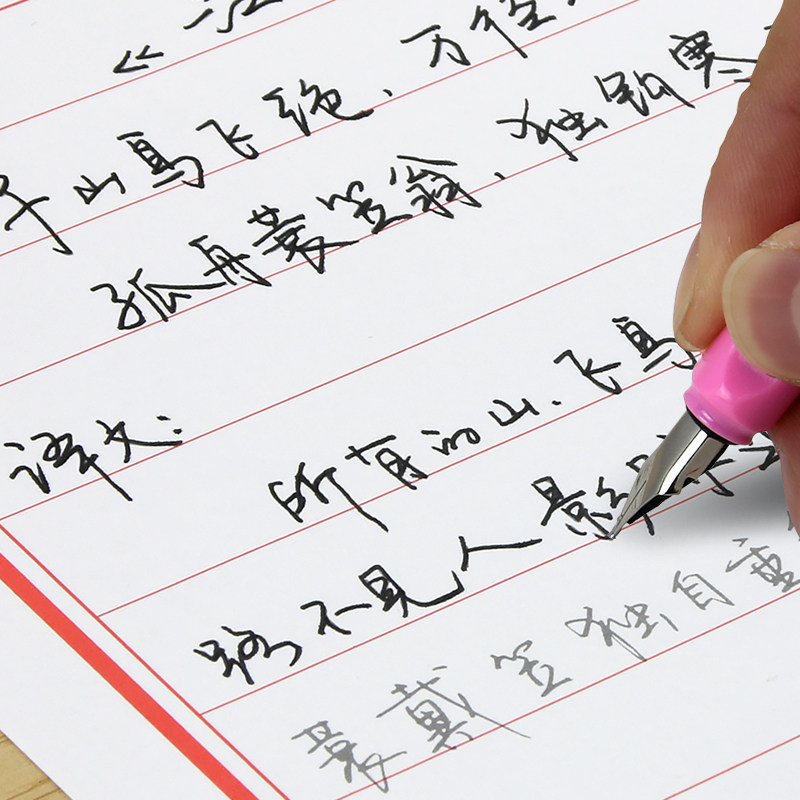 《江
千山鸟飞绝、万径
孤舟蓑笠翁、独钓寒
译文：所有的山、飞鸟
路不见人影
蓑戴笠独自垂